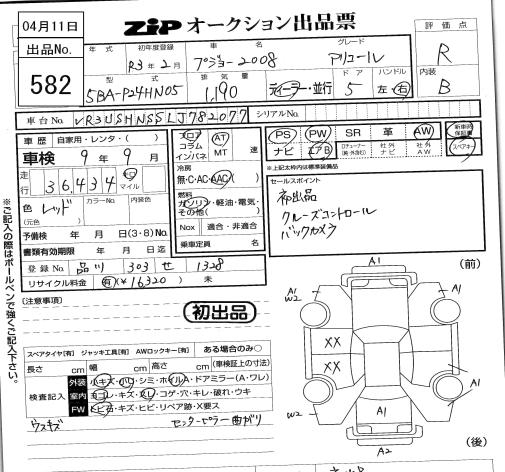 04月11日
ZiP オークション出品票
評価点
出品No.
582
年式
初年度登録
車名
グレード
R3年2月
プジョー2008
アリュール
R
型式
排気量
ドア
ハンドル
内装
5BA-P24HN05
1,190
ディーラー・並行
5
左・右
B
車台No.
VR3USHNSSLJ782077
シリアルNo.
車歴
自家用・レンタ・( )
車検
9年9月
走行
36,434
km
マイル
色
(元色)
レッド
カラーNo.
内装色
予備検 年 月 日(3・8)No.
書類有効期限 年 月 日迄
登録No.
品川 303 せ 1328
リサイクル料金
有(¥16320) 未
フロア
コラム
インパネ
AT
MT
速
冷房
無・C・AC・AAC
燃料
ガソリン・軽油・電気・
その他( )
Nox
適合・非適合
乗車定員 名
PS PW SR 革 AW
新車時保証書
ナビ エアB
社外ナビ
社外AW
スペアキー
※上記太枠内は標準装備品
セールスポイント
初出品
クルーズコントロール
バックカメラ
※ご記入の際はボールペンで強くご記入下さい。
(注意事項)
初出品
スペアタイヤ[有] ジャッキ工具[有] AWロックキー[有]
ある場合のみ○
長さ cm 幅 cm 高さ cm (車検証上の寸法)
検査記入
外装
小キズ・小凹・シミ・ホイル・ドアミラー(A・ワレ)
室内
ヨゴレ・キズ・スレ・コゲ・穴・キレ・破れ・ウキ
FW
トビ石・キズ・ヒビ・リペア跡・X要ス
ウスキズ
センターピラー曲がり
(前)
A1
A1
W2
A1
XX
XX
A1
W2
A1
A1
A2
(後)